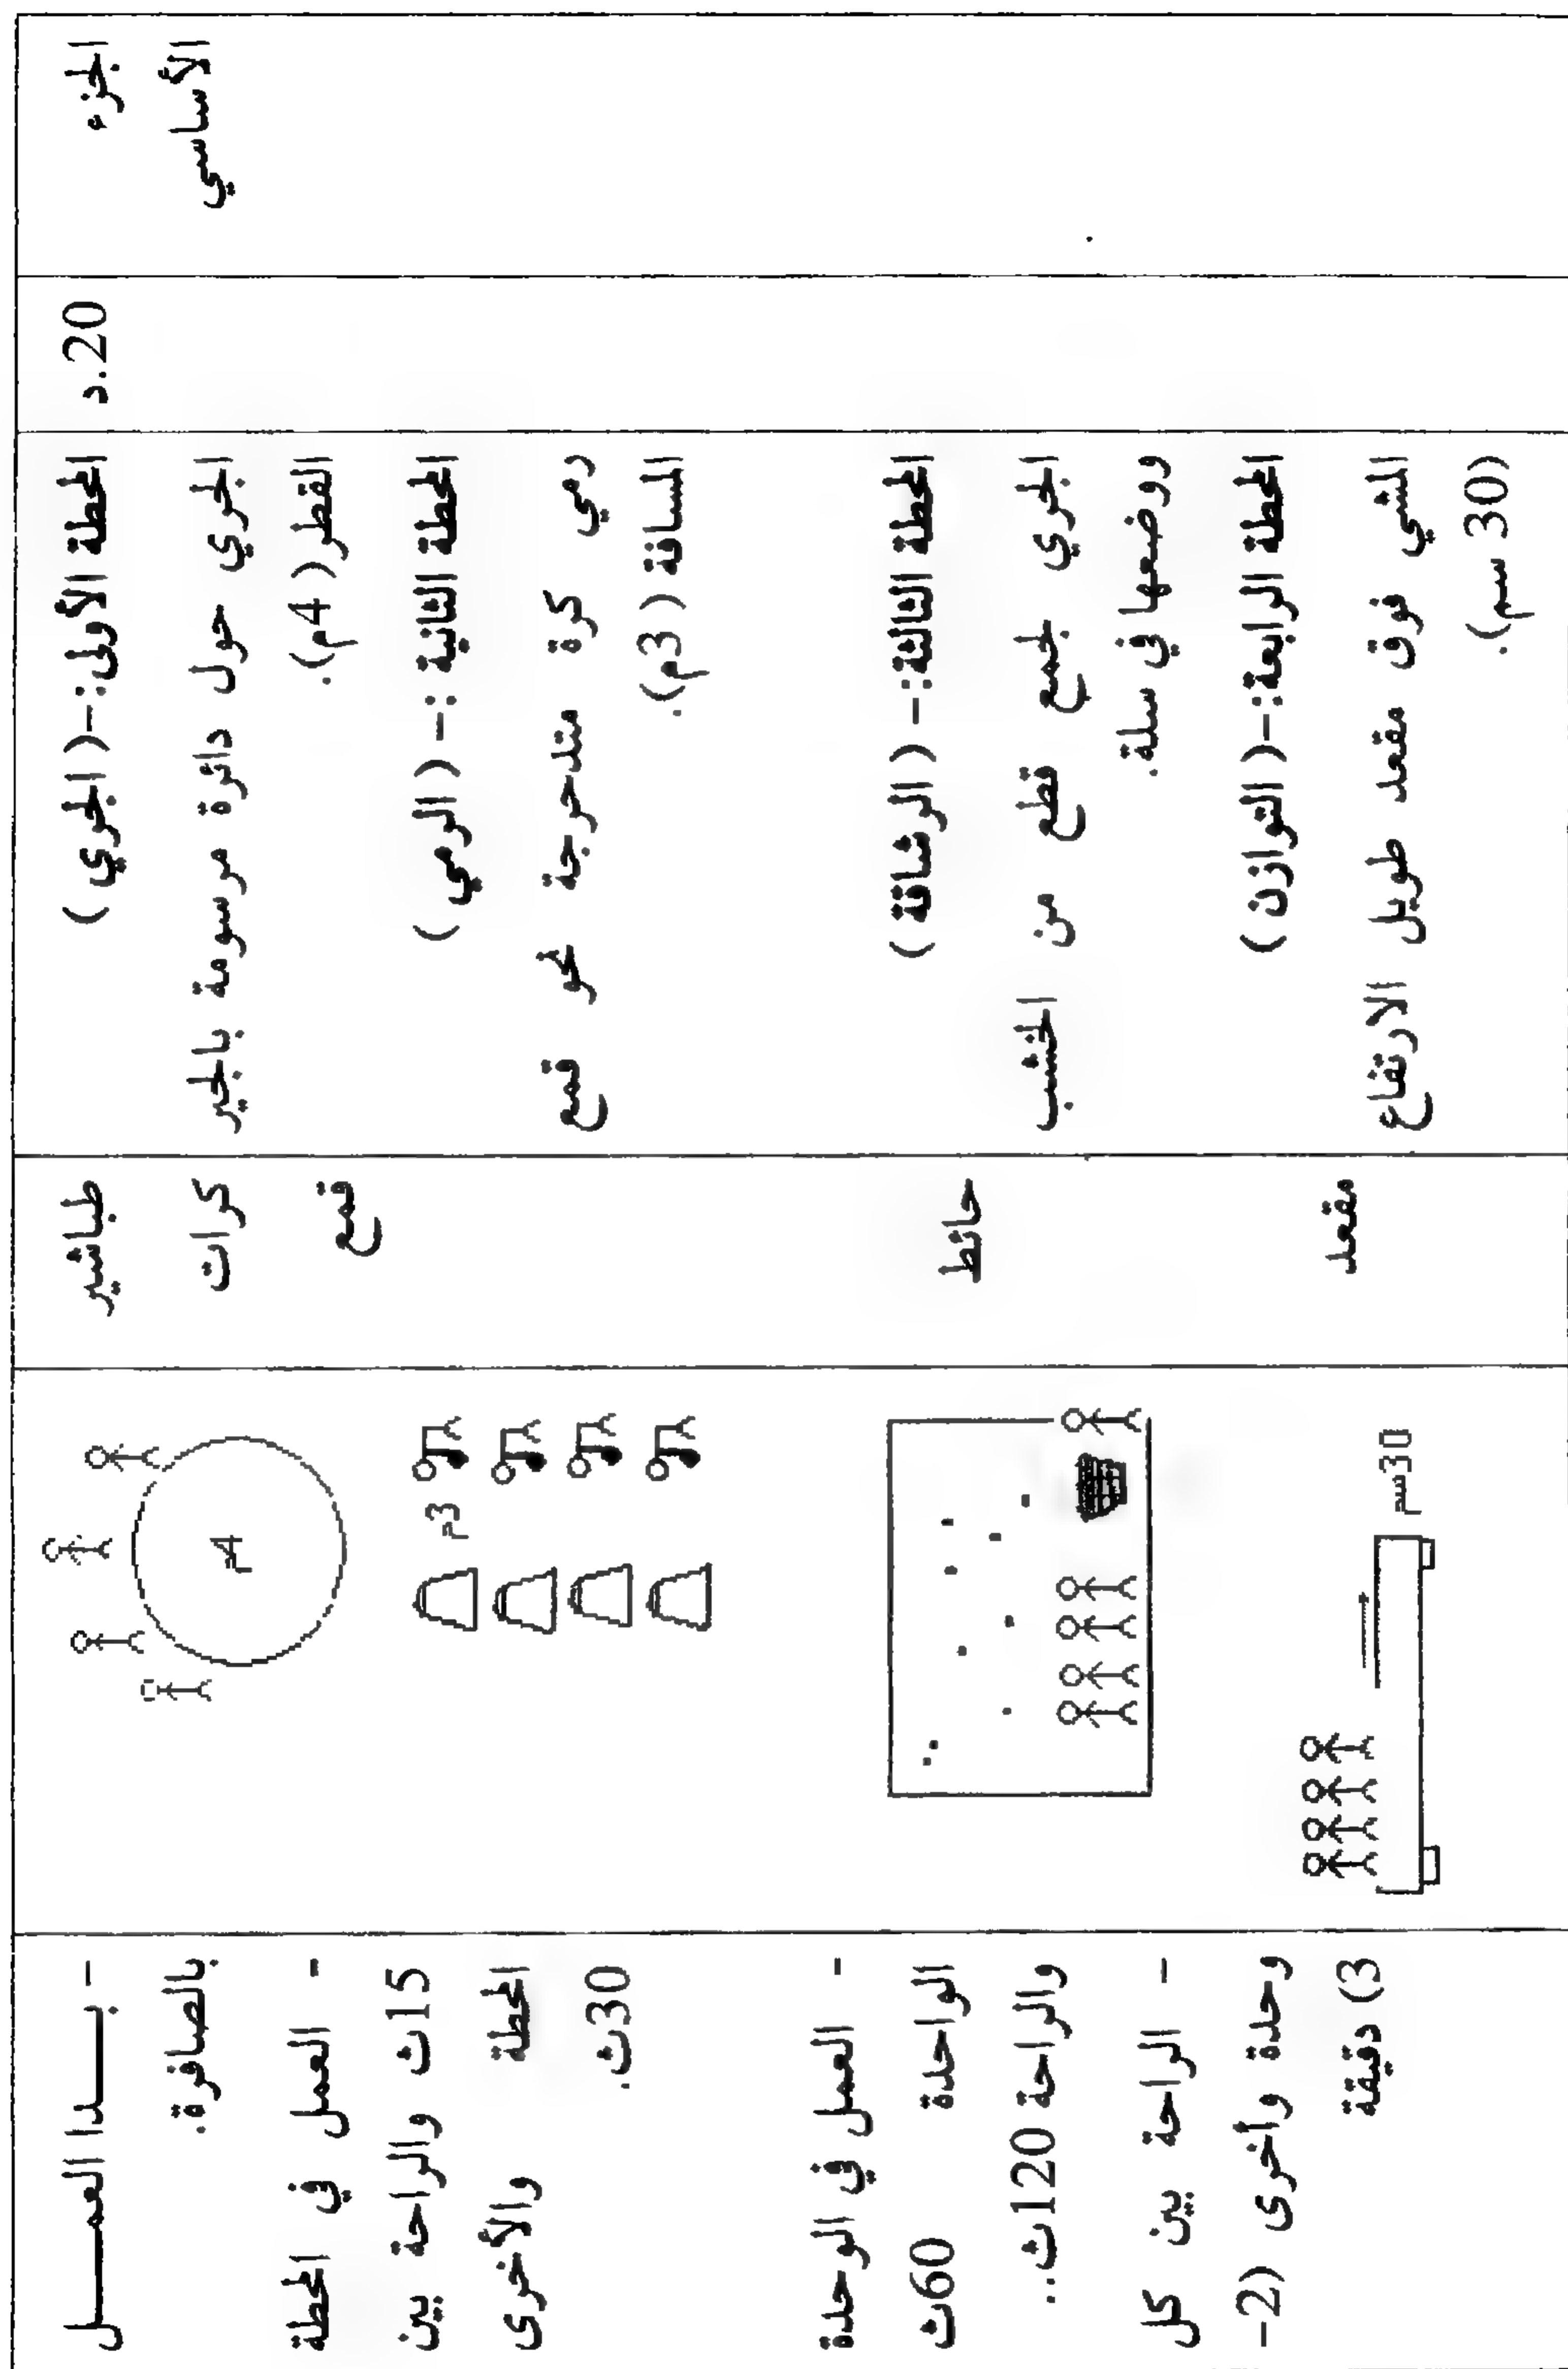 الجزء
الأساسي
20.د
المحطة الأولى:-( الجري )
الجري حول دائرة مرسومة بالجير
القطر( 4م).
المحطة الثانية :- ( الرمي )
رمي كرة متدحرجة نحو قمع
المسافة ( 3م).
المحطة الثالثة:- ( الرشاقة )
الجري لجمع قطع من الخشب
ووضعها في سلة.
المحطة الرابعة:-( التوازن )
المشي فوق مقعد طويل الارتفاع
(30 سم).
طباشير
كرات
قمع
حائط
مقعد
4م
3م
30سم
- بـــدا العمــــل
بالصافرة.
- العمل في المحطة
15ث والراحة بين
المحطة والأخرى
30ث.
- العمل في الوحدة
الواحدة 60ث
والراحة 120ث..
- الراحة بين كل
وحدة وأخرى (2-
3) دقيقة